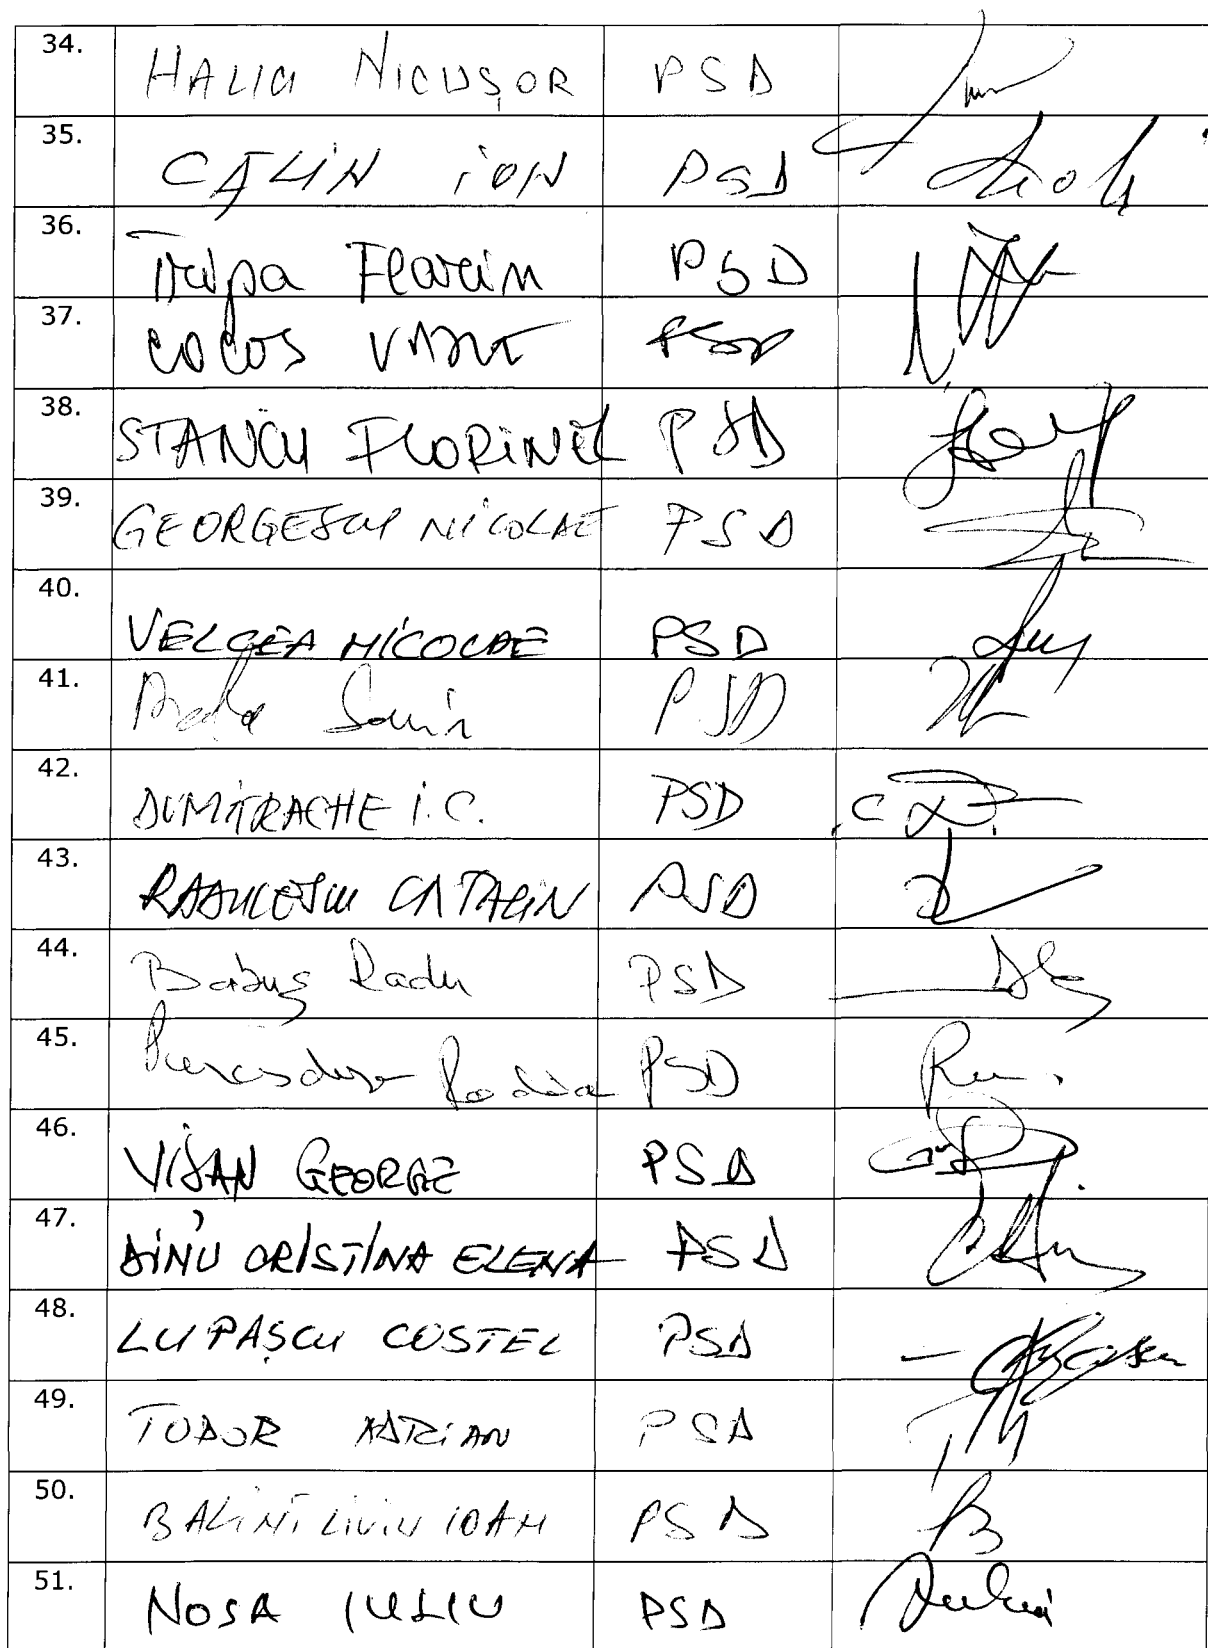 34. HALICI NICUȘOR PSD
35. CĂLIN ION PSD
36. Tripa Florin PSD
37. COCOS VARTZ PSD
38. STANCU FLORINEL PSD
39. GEORGESCU NICOLAE PSD
40. VELCEA NICOLAE PSD
41. Sorin PSD
42. DUMITRACHE I.C. PSD
43. RADULESCU CATALIN PSD
44. Babuș Radu PSD
45. PSD
46. VIȘAN GEORGE PSD
47. DINU CRISTINA ELENA PSD
48. LUPAȘCU COSTEL PSD
49. TUDOR ADRIAN PSD
50. BALINT LIVIU IOAN PSD
51. NOSA IULIU PSD